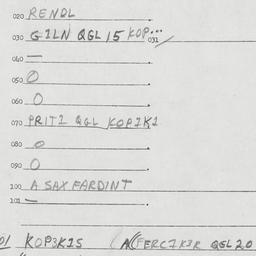 020 RENDL
030 GILN QGL 15 KOP... 031
040 —
050 0
060 0
070 PRITI QGL KOPIKI
080 0
090 0
100 A SAX FARDINT
101 —
01 KOP3KIS QGL 20